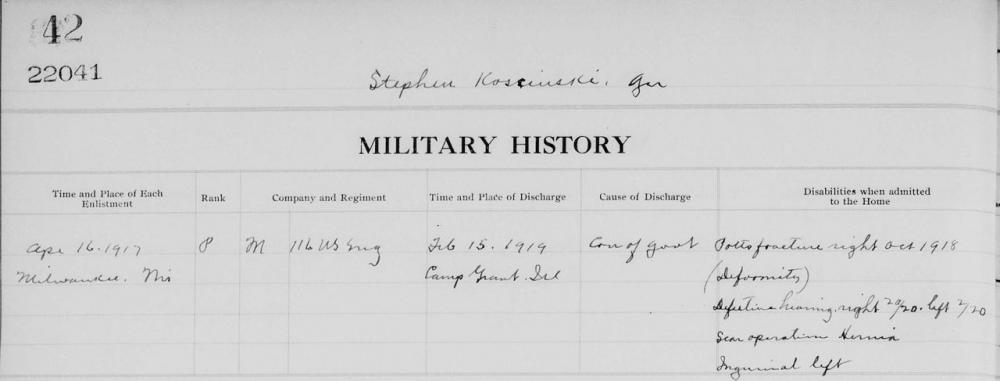 42
22041
Stephen Koscinski. Jr
MILITARY HISTORY
Time and Place of Each Enlistment
Rank
Company and Regiment
Time and Place of Discharge
Cause of Discharge
Disabilities when admitted to the Home
Apr 16. 1917 P M 116 US Eng Feb 15. 1919 Con of Govt Potts fracture right Oct 1918
Milwaukee. Wis Camp Grant. Ill (Deformity)
Defective hearing. right 20/20. left 2/20
Scar operation Hernia
Inguinal left